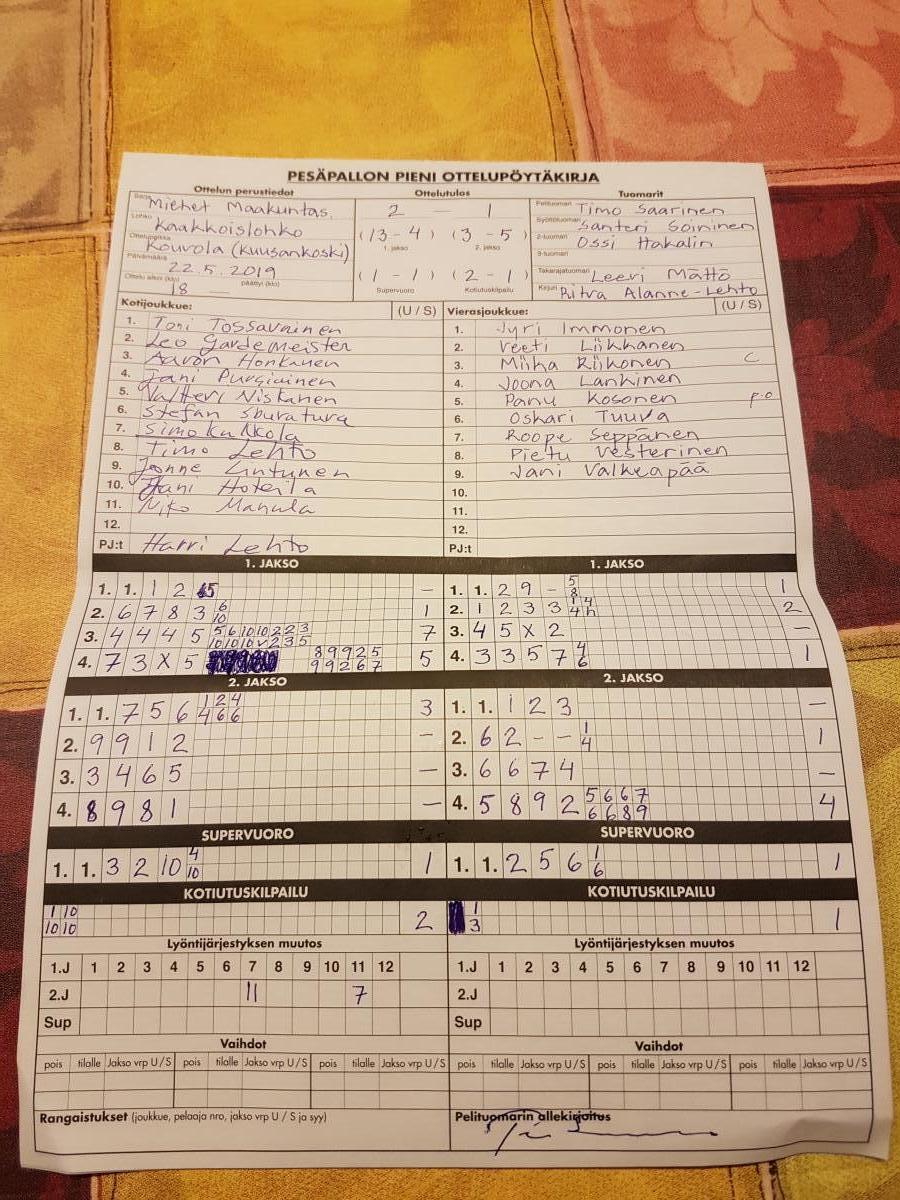 PESÄPALLON PIENI OTTELUPÖYTÄKIRJA
Ottelun perustiedot Ottelutulos Tuomarit
Sarja Miehet Maakuntas.
Lohko Kaakkoislohko
Ottelupaikka Kouvola (Kuusankoski)
Päivämäärä 22.5.2019
Ottelu alkoi (klo) 18 päättyi (klo)
2 — 1
(13 - 4) (3 - 5)
1. jakso 2. jakso
(1 - 1) (2 - 1)
Supervuoro Kotiutuskilpailu
Pelituomari Timo Saarinen
Syöttötuomari Santeri Soininen
2-tuomari Ossi Hakalin
3-tuomari
Takarajatuomari Leevi Mättö
Kirjuri Ritva Alanne-Lehto
Kotijoukkue: (U / S) Vierasjoukkue: (U / S)
1. Toni Tossavainen 1. Jyri Immonen
2. Leo Gardemeister 2. Veeti Liikkanen
3. Aaron Honkanen 3. Miiha Riikonen C
4. Jani Purgiainen 4. Joona Lankinen
5. Valtteri Niskanen 5. Panu Kosonen p.o
6. Stefan 6. Oskari Tuuva
7. Simo Kukkola 7. Roope Seppänen
8. Timo Lehto 8. Pietu Vesterinen
9. Janne Lintunen 9. Jani Valkeapää
10. Jani Hoteila 10.
11. Niko Manula 11.
12. 12.
PJ:t Harri Lehto PJ:t
1. JAKSO 1. JAKSO
1. 1. 1 2 — 1. 1. 2 9 - 5 8 1
2. 6 7 8 3 6 10 1 2. 1 2 3 3 1 4 4 h 2
3. 4 4 4 5 5 6 10 10 2 2 3 10 10 10 v 2 3 5 7 3. 4 5 X 2 —
4. 7 3 X 5 8 9 9 2 5 9 9 2 6 7 5 4. 3 3 5 7 4 6 1
2. JAKSO 2. JAKSO
1. 1. 7 5 6 1 2 4 4 6 6 3 1. 1. 1 2 3 —
2. 9 9 1 2 — 2. 6 2 - - 1 4 1
3. 3 4 6 5 — 3. 6 6 7 4 —
4. 8 9 8 1 — 4. 5 8 9 2 5 6 6 7 6 6 8 9 4
SUPERVUORO SUPERVUORO
1. 1. 3 2 10 4 10 1 1. 1. 2 5 6 1 6 1
KOTIUTUSKILPAILU KOTIUTUSKILPAILU
1 10 10 10 2 1 3 1
Lyöntijärjestyksen muutos Lyöntijärjestyksen muutos
1.J 1 2 3 4 5 6 7 8 9 10 11 12 1.J 1 2 3 4 5 6 7 8 9 10 11 12
2.J 11 7 2.J
Sup Sup
Vaihdot Vaihdot
pois tilalle Jakso vrp U / S pois tilalle Jakso vrp U / S pois tilalle Jakso vrp U / S pois tilalle Jakso vrp U / S pois tilalle Jakso vrp U / S pois tilalle Jakso vrp U / S
Rangaistukset (joukkue, pelaaja nro, jakso vrp U / S ja syy) Pelituomarin allekirjoitus